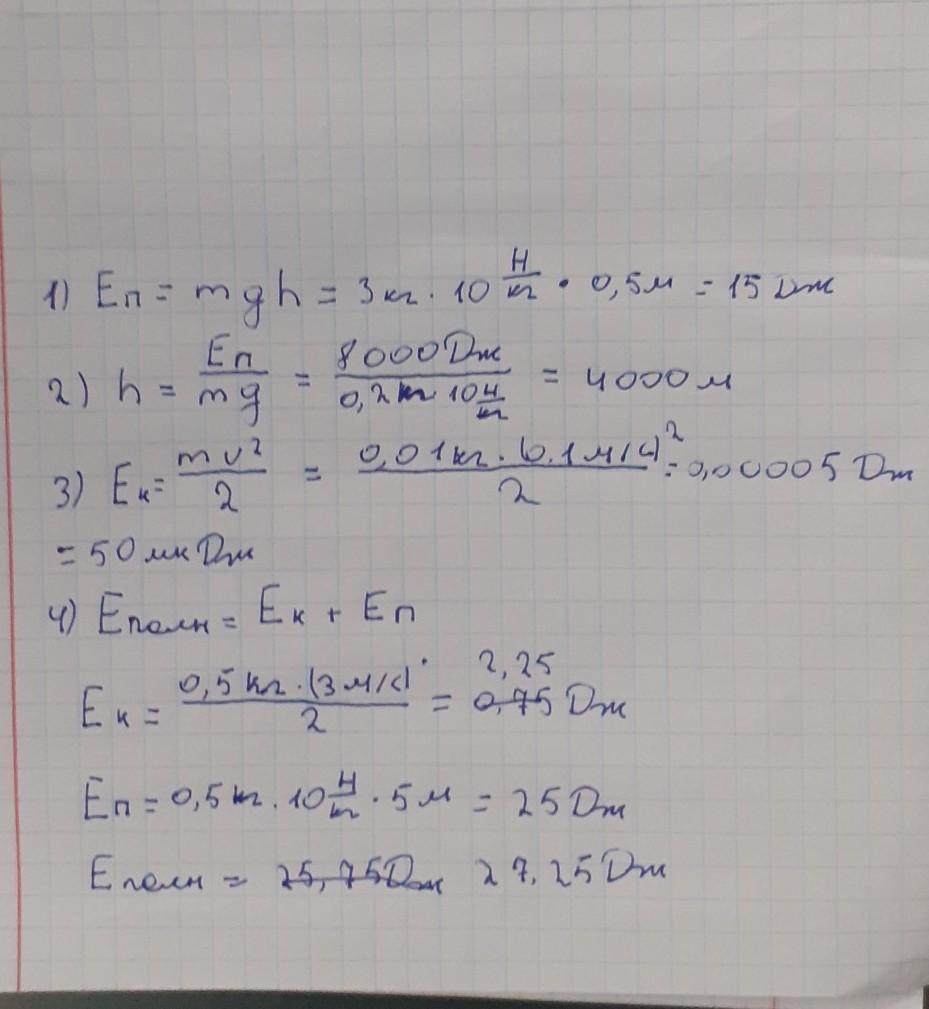 1) Eп = mgh = 3 кг · 10 Н/кг · 0,5 м = 15 Дж
2) h = Eп/mg = 8000 Дж/0,2 кг · 10 Н/кг = 4000 м
3) Eк = mv²/2 = 0,01 кг · (0,1 м/с)²/2 = 0,00005 Дж
= 50 мкДж
4) Eполн = Eк + Eп
Eк = 0,5 кг · (3 м/с)²/2 = 0,75 2,25 Дж
Eп = 0,5 кг · 10 Н/кг · 5 м = 25 Дж
Eполн = 25,75 Дж 27,25 Дж